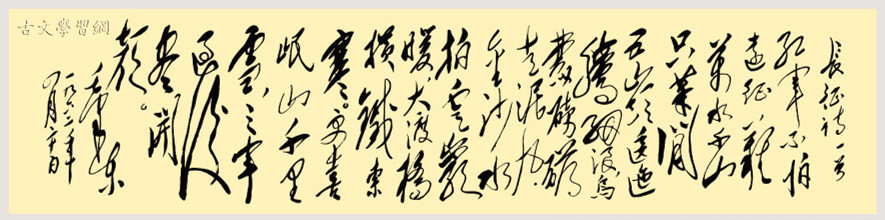 古文學習網
長征詩一首
紅軍不怕
遠征難
萬水千山
只等閒
五嶺逶迤
騰細浪烏
蒙磅礴
走泥丸
金沙水
拍雲崖
暖、大渡橋
橫鐵索
寒。更喜
岷山千里
雪、三軍
過後
盡開
顏。
毛澤東
一九六二年
四月廿日